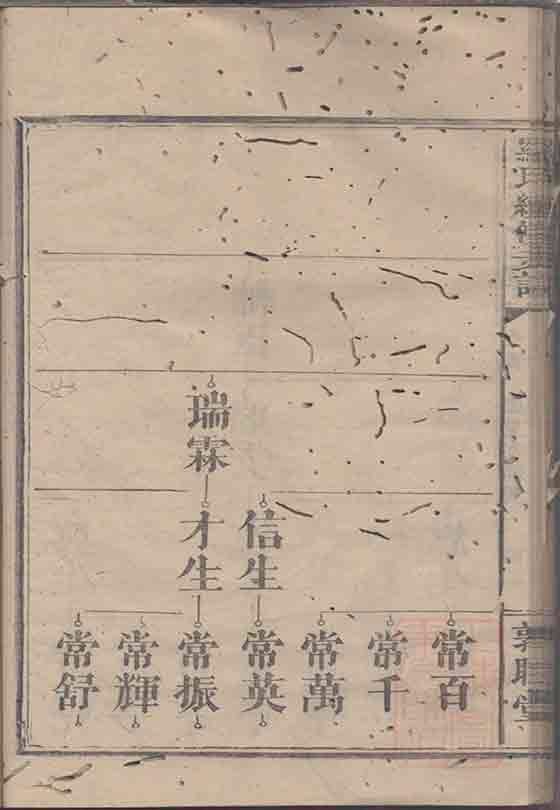 氏續修支譜
堂
瑞霖
信生
才生
常百
常千
常萬
常英
常振
常輝
常舒